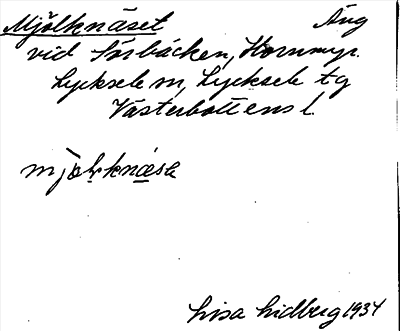 Mjölknäset Äng
vid Sörbäcken, Kornmyr.
Lycksele m, Lycksele tg
Västerbottens l.
mjölknäse
Lisa Lidberg 1934